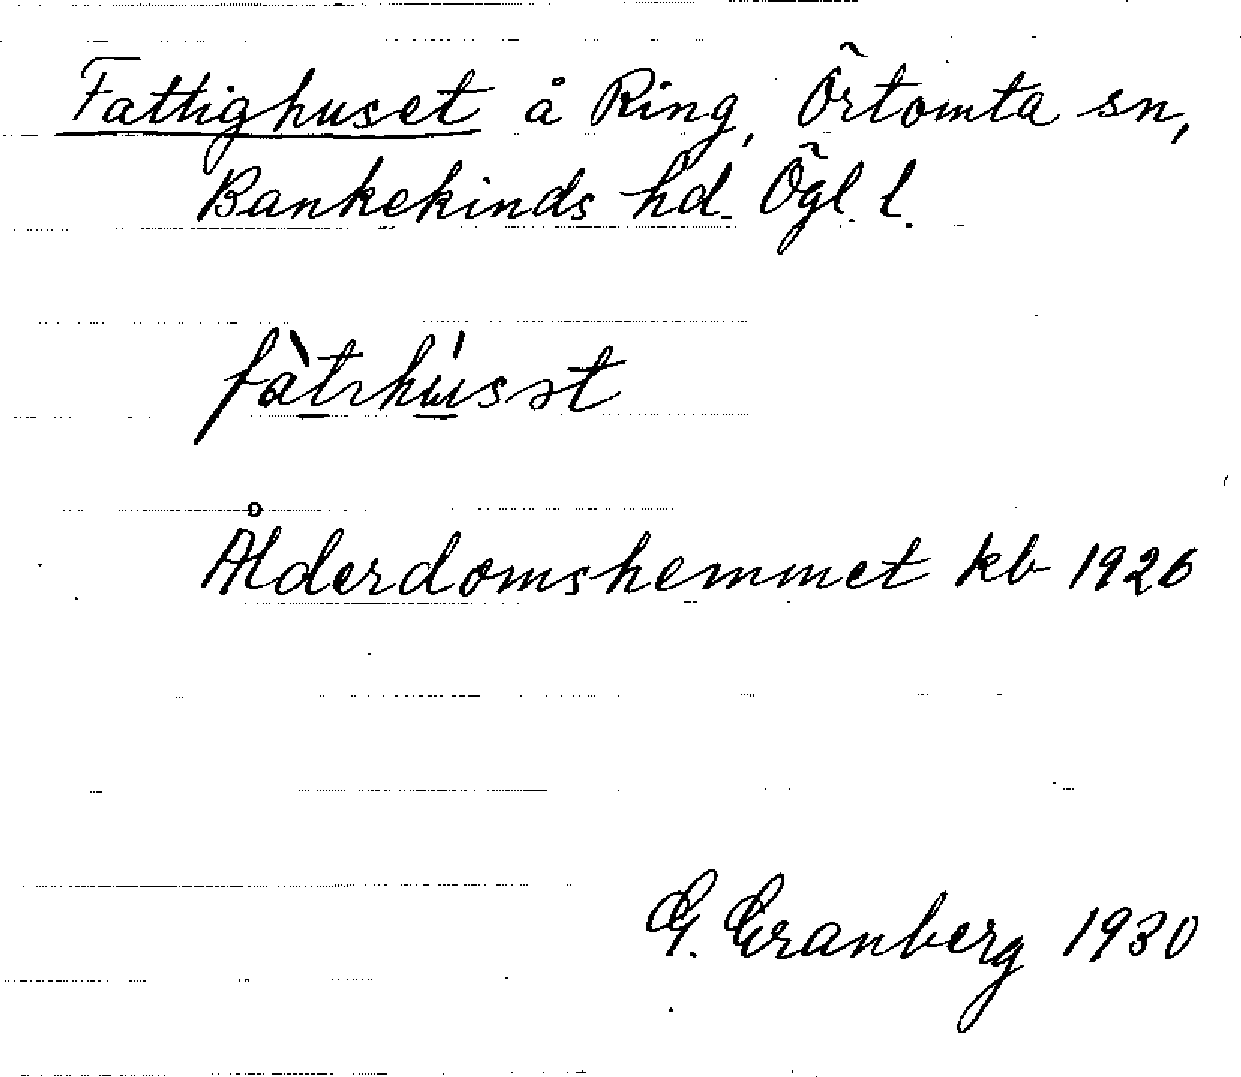 Fattighuset å Ring, Örtomta sn,
Bankekinds hd. Ögl. l.
Ålderdomshemmet kb 1926
G. Granberg 1930